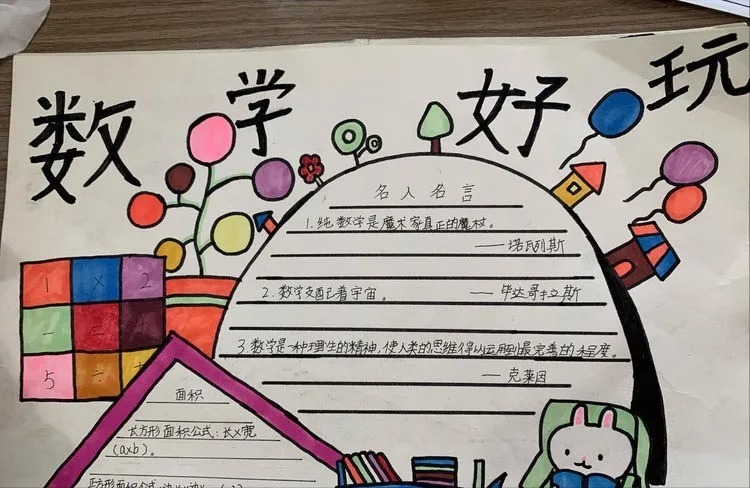 数学好玩
名人名言
1.纯数学是魔术家真正的魔杖。
——诺瓦列斯
2.数学支配着宇宙。 ——毕达哥拉斯
3.数学是一种理性的精神,使人类的思维得以运用到最完善的程度。
——克莱因
1 × 2
- = +
5 ÷
面积
长方形面积公式:长×宽
(a×b)。